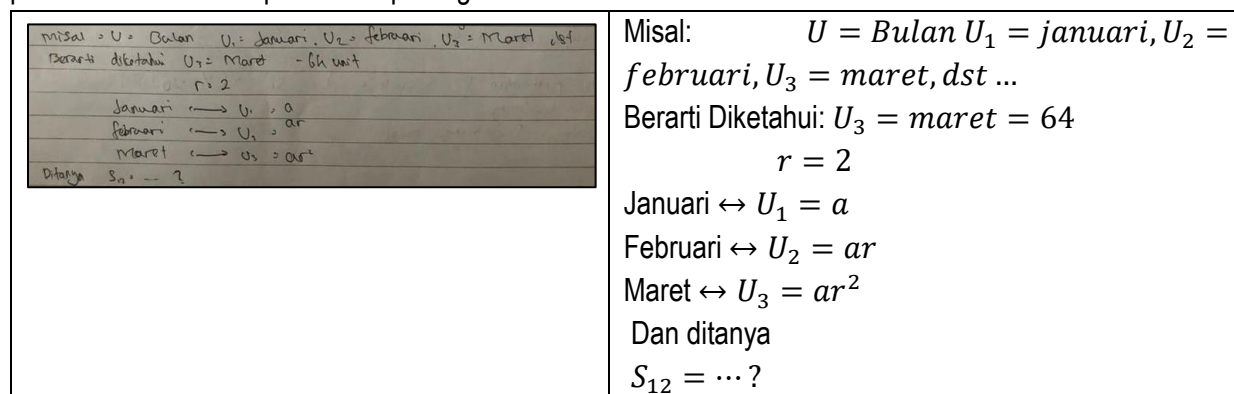 misal = U = Bulan U₁ = Januari, U₂ = februari, U₃ = Maret, dst
Berarti diketahui U₃ = Maret - 64 unit
r = 2
Januari ⟷ U₁ = a
februari ⟷ U₂ = ar
Maret ⟷ U₃ = ar²
Ditanya S₁₂ = ... ?
Misal: U = Bulan U₁ = januari, U₂ =
februari, U₃ = maret, dst ...
Berarti Diketahui: U₃ = maret = 64
r = 2
Januari ↔ U₁ = a
Februari ↔ U₂ = ar
Maret ↔ U₃ = ar²
Dan ditanya
S₁₂ = ⋯ ?